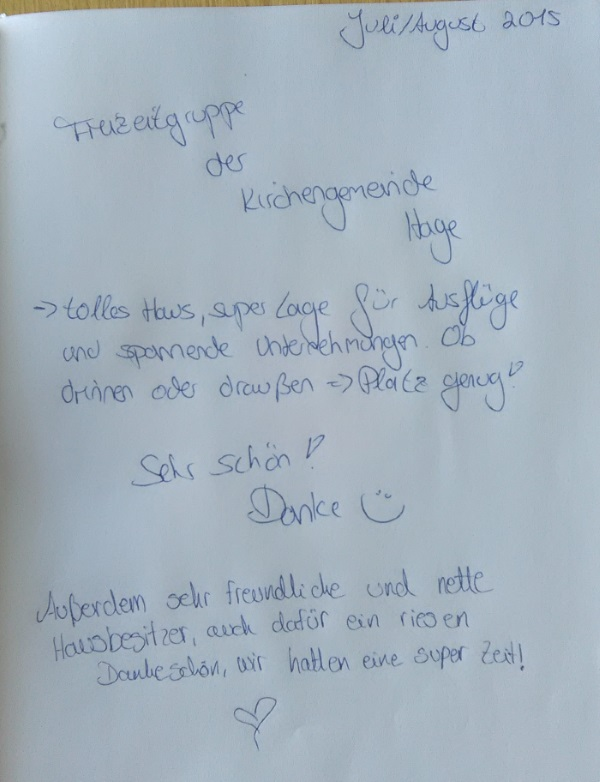 Juli/August 2015
Freizeitgruppe
der
Kirchengemeinde
Hage
-> tolles Haus, super Lage für Ausflüge
und spannende Unternehmungen. Ob
drinnen oder draußen => Platz genug!
Sehr schön!
Danke ☺
Außerdem sehr freundliche und nette
Hausbesitzer, auch dafür ein riesen
Dankeschön, wir hatten eine super Zeit!
♡